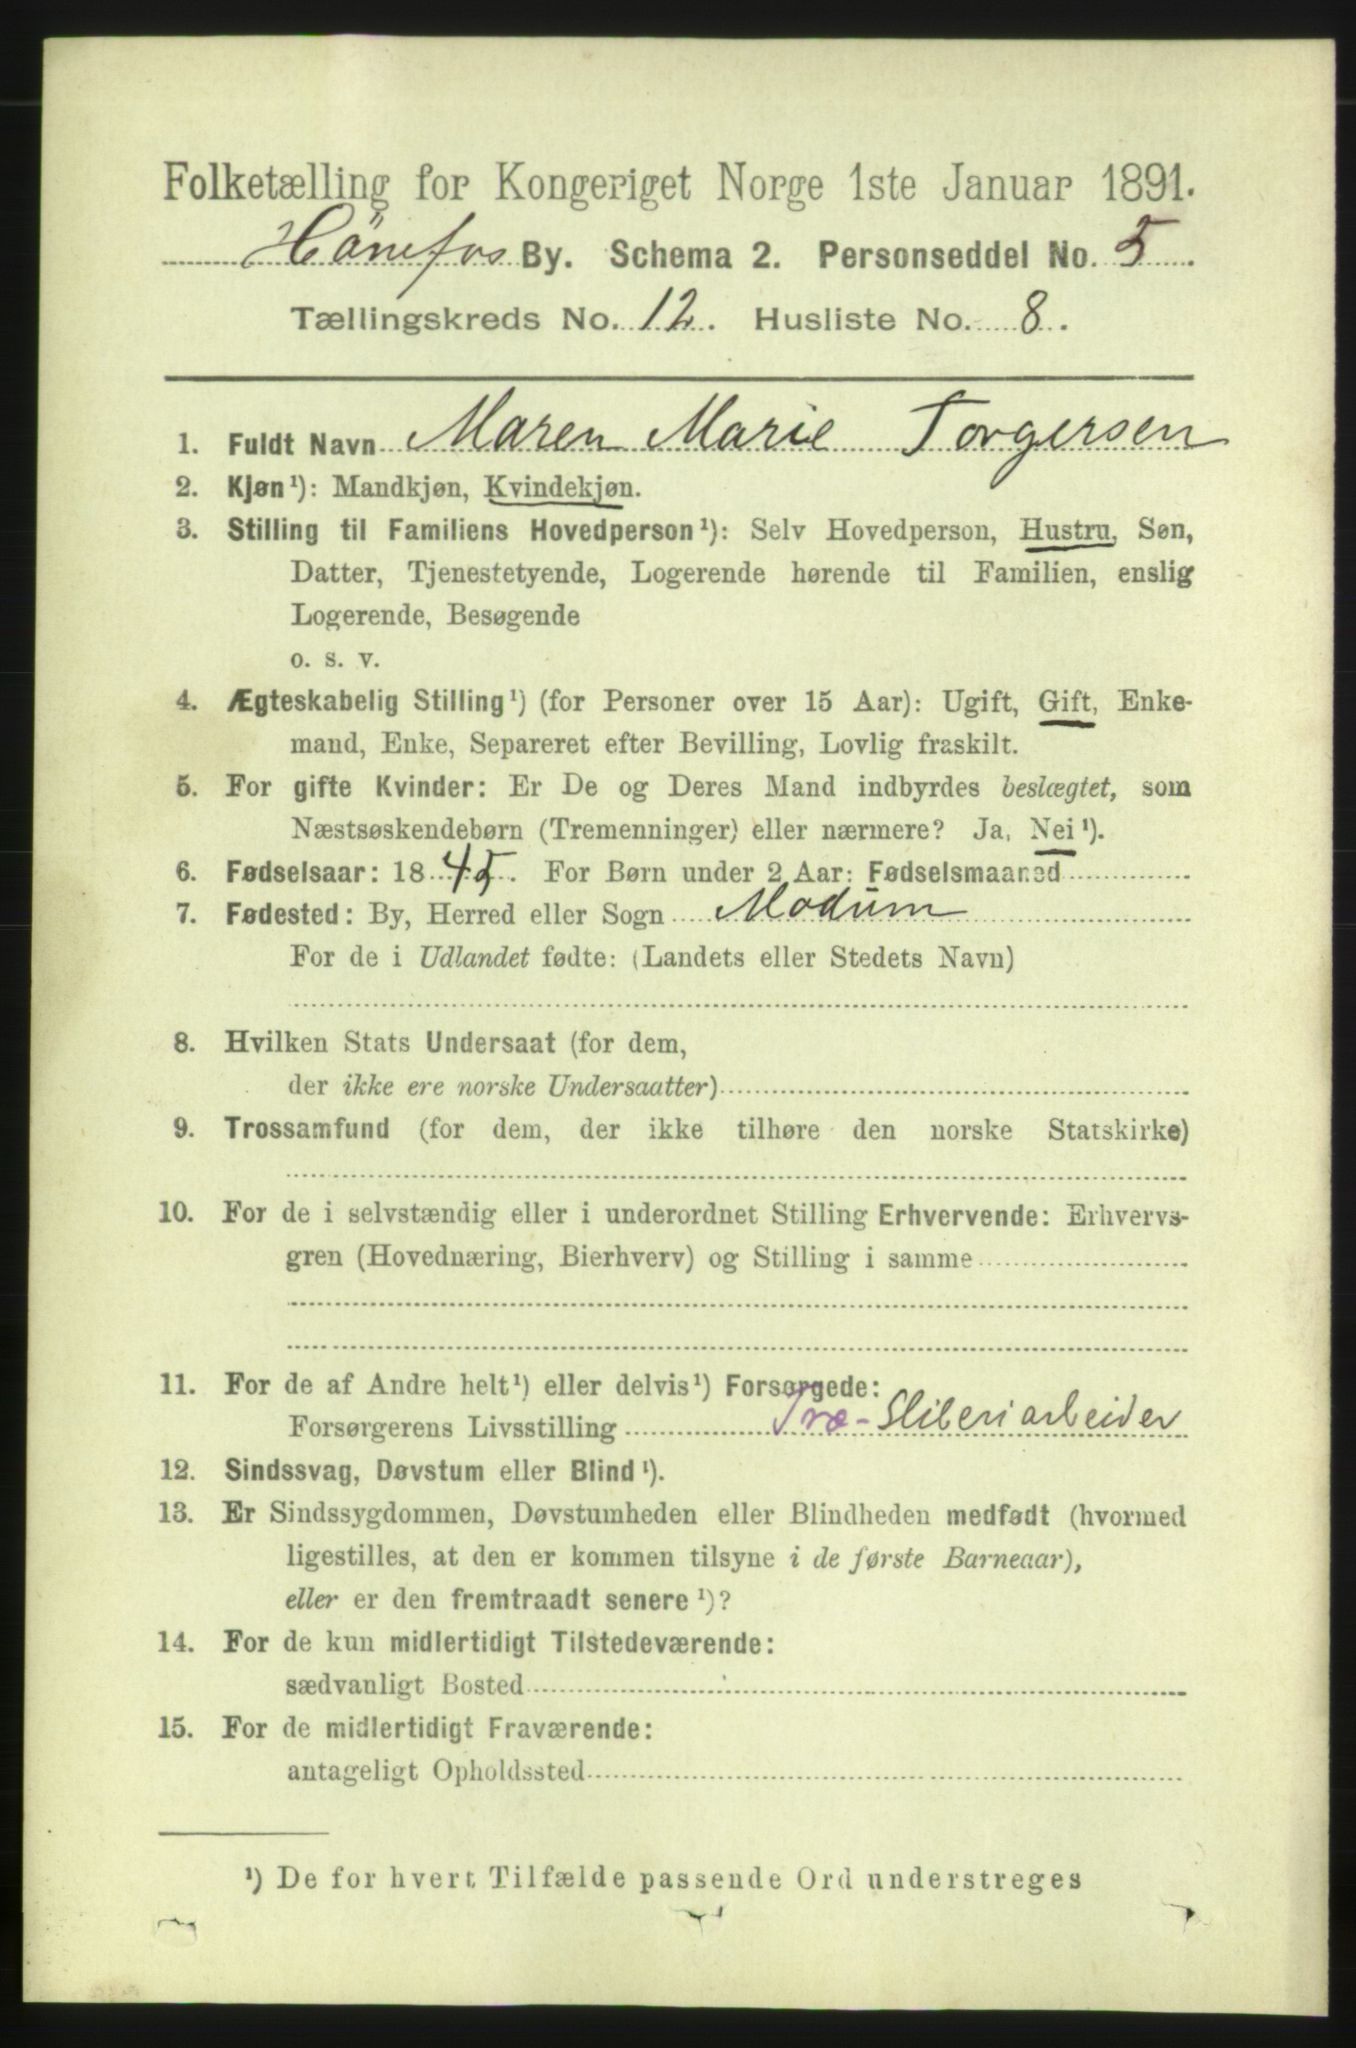 Folketælling for Kongeriget Norge 1ste Januar 1891.
Hönefos By. Schema 2. Personseddel No. 5
Tællingskreds No. 12. Husliste No. 8.
1. Fuldt Navn Maren Marie Torgersen
2. Kjøn¹): Mandkjøn, Kvindekjøn.
3. Stilling til Familiens Hovedperson¹): Selv Hovedperson, Hustru, Søn,
Datter, Tjenestetyende, Logerende hørende til Familien, enslig
Logerende, Besøgende
o. s. v.
4. Ægteskabelig Stilling¹) (for Personer over 15 Aar): Ugift, Gift, Enke-
mand, Enke, Separeret efter Bevilling, Lovlig fraskilt.
5. For gifte Kvinder: Er De og Deres Mand indbyrdes beslægtet, som
Næstsøskendebørn (Tremenninger) eller nærmere? Ja, Nei¹).
6. Fødselsaar: 1845. For Børn under 2 Aar: Fødselsmaaned
7. Fødested: By, Herred eller Sogn Modum
For de i Udlandet fødte: (Landets eller Stedets Navn)
8. Hvilken Stats Undersaat (for dem,
der ikke ere norske Undersaatter)
9. Trossamfund (for dem, der ikke tilhøre den norske Statskirke)
10. For de i selvstændig eller i underordnet Stilling Erhvervende: Erhvervs-
gren (Hovednæring, Bierhverv) og Stilling i samme
11. For de af Andre helt¹) eller delvis¹) Forsørgede:
Forsørgerens Livsstilling Træ-Sliberiarbeider
12. Sindssvag, Døvstum eller Blind¹).
13. Er Sindssygdommen, Døvstumheden eller Blindheden medfødt (hvormed
ligestilles, at den er kommen tilsyne i de første Barneaar),
eller er den fremtraadt senere¹)?
14. For de kun midlertidigt Tilstedeværende:
sædvanligt Bosted
15. For de midlertidigt Fraværende:
antageligt Opholdssted
¹) De for hvert Tilfælde passende Ord understreges